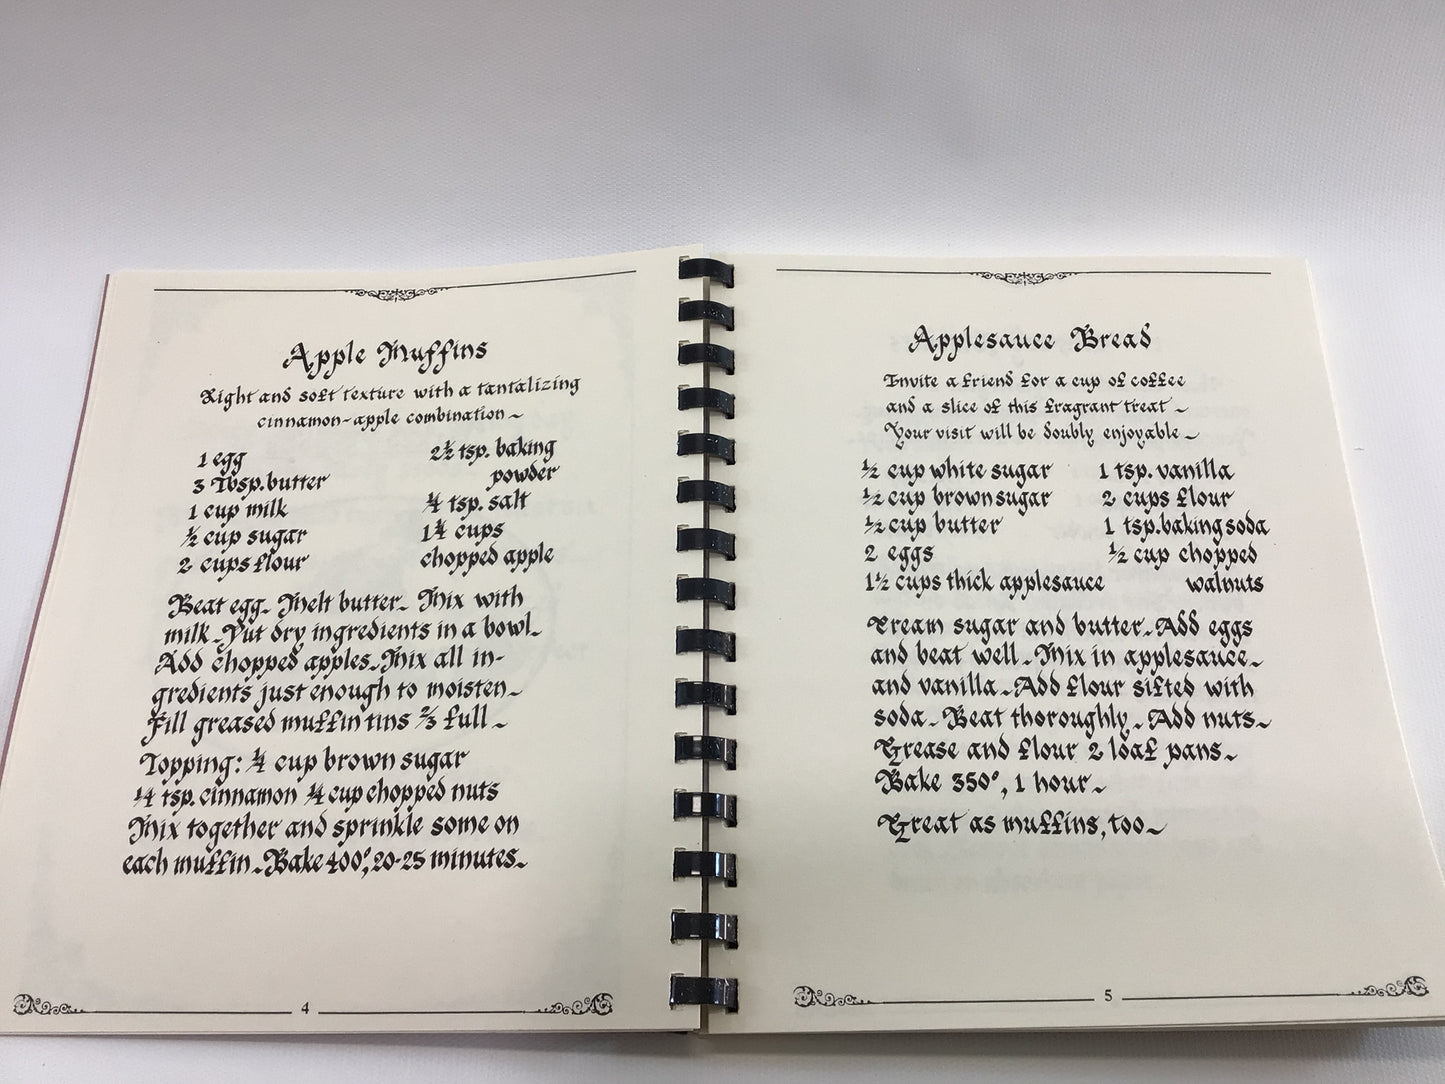 Apple Muffins
Light and soft texture with a tantalizing
cinnamon-apple combination~
1 egg
3 Tbsp. butter
1 cup milk
½ cup sugar
2 cups flour
2½ tsp. baking
powder
¼ tsp. salt
1¼ cups
chopped apple
Beat egg~ Melt butter~ Mix with
milk~ Put dry ingredients in a bowl~
Add chopped apples~ Mix all in-
gredients just enough to moisten~
Fill greased muffin tins ⅔ full~
Topping: ¼ cup brown sugar
¼ tsp. cinnamon ¼ cup chopped nuts
Mix together and sprinkle some on
each muffin~ Bake 400°, 20-25 minutes~
4
Applesauce Bread
Invite a friend for a cup of coffee
and a slice of this fragrant treat~
Your visit will be doubly enjoyable~
½ cup white sugar
½ cup brown sugar
½ cup butter
2 eggs
1½ cups thick applesauce
1 tsp. vanilla
2 cups flour
1 tsp. baking soda
½ cup chopped
walnuts
Cream sugar and butter~ Add eggs
and beat well~ Mix in applesauce~
and vanilla~ Add flour sifted with
soda~ Beat thoroughly~ Add nuts~
Grease and flour 2 loaf pans~
Bake 350°, 1 hour~
Great as muffins, too~
5